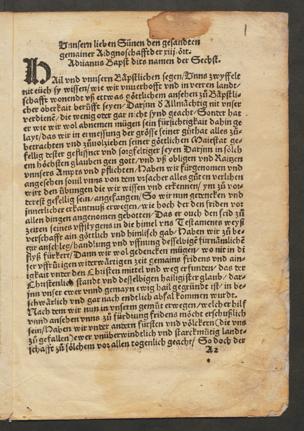 Unnsern lieben Sünen den gesandten
gemainer Aidgnoschafft der xiij. ört.
Adrianus Bapst dits namen der Sechst.
HAil vnd vnnsern Bäpstlichen segen / Vnns zwyffele
nit eüch sy wissen / wie wir vnuerhofft vnd in verren landt-
schafft wonendt vß etwas
cher oberkait berüfft seyen / Darzuo Allmächtig nit vnser
verdienst / die wenig oder gar nicht synd geacht / Sonder hat
er wie wir wol abnemen mügen sein fürsichtigkait dahin ge
layt / das wir in ermessung der grösse seiner güthat alles zü
betrachten vnd züuolziehen seiner götlichen Maiestat ge-
fellig dester geflissner vnd sorgfeltiger seyen
em höchsten glauben gen gott / vnd vß obligen vnd
vnnsers Ampts vnd pflichten / Haben wir fürgenomen vnd
angesehen
wirt den übungen die wir wissen vnd erkennen / ym zü vor-
derest gefellig sein angefangen / So wir nun gemercken vnd
jnnerlicher erkantnuß erwegen / wie hoch der den friden vor
allen dingen angenomen gebotten / Das er ouch den seid zü
zeiten seines
verschaffe ain göttlich vnd himlisch gab / Haben wir zü be-
ger anschleg / handlung vnd vffnung desselbigen fürnämliche
flyß fürkert / Dann wir wol gedencken mügen / wo nit in
ger vffrüren widerwärtigen zeit gemains fridens vnd ain-
igkait vnter den Christen mittel vnd weg erfunden / das der
Christenlich standt vnd desselbigen hailigister glaub / dar-
inn vnser ewer vnd gemayn ewig hail gegründt ist / in be-
schwärlich vnd gar nach endtlich abfal kommen wurdt.
Nach dem wir nun in vnserm gemüt erwegen / welcher hilff
vnnd ansehen vnns zü fürdrung fridens möcht erschüßlich
sein / Haben wir vnter andern fürsten vnd völckern (die vns
zü gefallen) ewer vnüberwindtlich vnd starckmütig landt-
schafft zü sölchem vor allen togenlich geacht / So doch der
A2